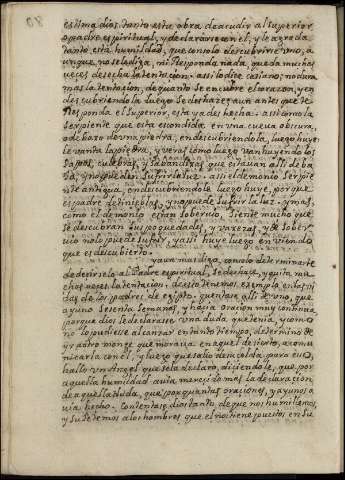 estima dios tanto esta obra de acudir al superior
o padre espiritual, y declararse con el, y le agrada
tanto esta humildad, que con solo descubrirse uno, a
unque no se le diga, ni Responda nada, queda muchas
veces desecha la tentacion. assi lo dice casiano, no dura
mas la tentacion, de quanto se encubre el corazon, y en
descubriendola luego se deshaze, aun antes que te
Responda el superior, esta ya deshecha. assi como la
serpiente que esta escondida en una cueva obscura,
o debaxo de una piedra, en descubriendola, luego huye
levanta la piedra, y veras como luego van huyendo los
sapos, culebras, y sabandixas que estavan alli deba
xo, y no pueden sufrir la luz. assi el demonio serpien
te antigua, en descubriendole luego huye, porque
es padre de tinieblas, y no puede sufrir la luz. y mas,
como el demonio es tan sobervio, siente mucho que
se descubran sus poquedades, y vaxezas, y de sober
vio no lo puede sufrir, y assi huye luego en viendo
que es descubierto.
y aun mas digo, con solo determinarte
de decirselo al Padre espiritual, se deshaze, y quita mu
chas vezes la tentacion. de esto tenemos exemplo en las vi
das de los padres de egipto. quentase alli de uno, que
ayuno sesenta semanas, y hazia oracion muy continua
porque dios le declarasse, una duda que tenia, y como
no lo pudiesse alcanzar en tanto tiempo, determino de
yr a otro monge que moraua en aquel desierto, a comu
nicarla con el, y luego que salio de su celda para esso,
hallo un angel que se la declaro, diciendole, que por
aquella humildad avia merecido mas la declaracion
de aquella duda, que por quantas oraciones, y ayunos a
via hecho. contentase dios tanto, de que nos humillemos,
y sugetemos a los hombres que el nos tiene puestos en su